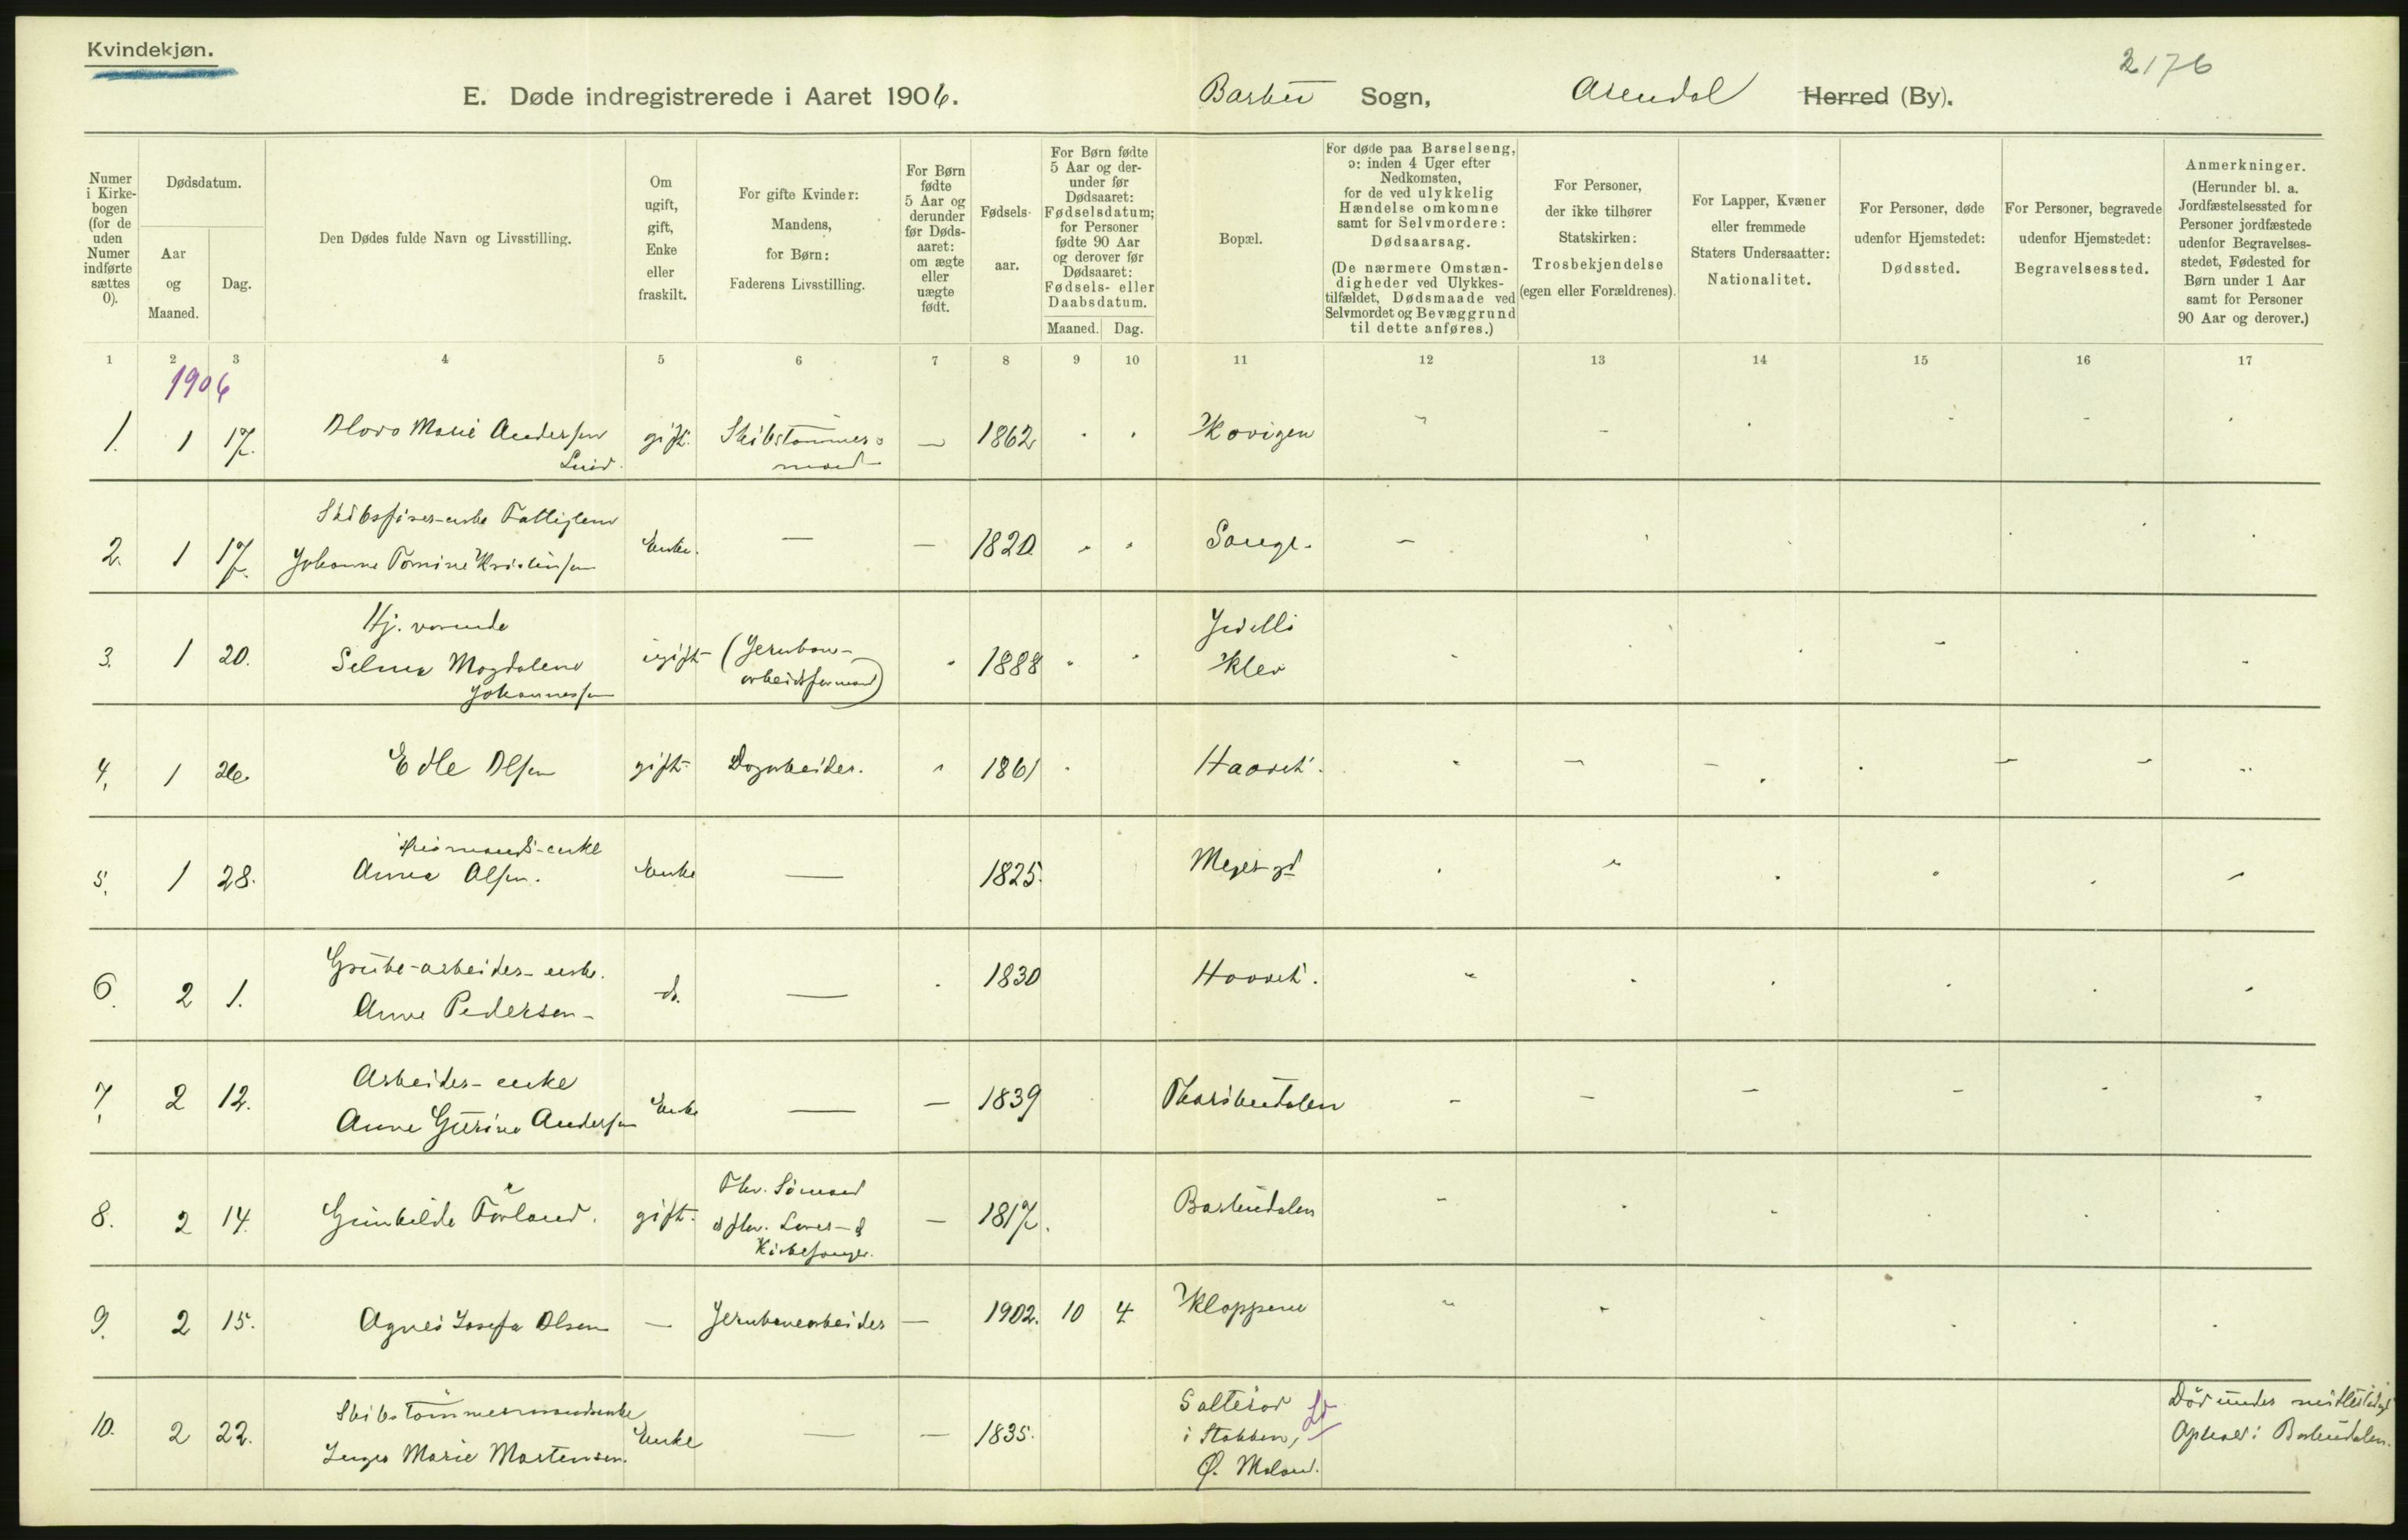 Kvindekjøn.
2176
E. Døde indregistrerede i Aaret 1906. Barbu Sogn, Arendal Herred (By).
Numer i Kirkebogen (for de uden Numer indførte sættes 0).
Dødsdatum.
Aar og Maaned.
Dag.
Den Dødes fulde Navn og Livsstilling.
Om ugift, gift, Enke eller fraskilt.
For gifte Kvinder: Mandens, for Børn: Faderens Livsstilling.
For Børn fødte 5 Aar og derunder før Dødsaaret: om ægte eller uægte født.
Fødselsaar.
For Børn fødte 5 Aar og derunder før Dødsaaret: Fødselsdatum; for Personer fødte 90 Aar og derover før Dødsaaret: Fødsels- eller Daabsdatum.
Maaned. Dag.
Bopæl.
For døde paa Barselseng, ɔ: inden 4 Uger efter Nedkomsten, for de ved ulykkelig Hændelse omkomne samt for Selvmordere: Dødsaarsag.
(De nærmere Omstændigheder ved Ulykkestilfældet, Dødsmaade ved Selvmordet og Bevæggrund til dette anføres.)
For Personer, der ikke tilhører Statskirken: Trosbekjendelse (egen eller Forældrenes).
For Lapper, Kvæner eller fremmede Staters Undersaatter: Nationalitet.
For Personer, døde udenfor Hjemstedet: Dødssted.
For Personer, begravede udenfor Hjemstedet: Begravelsessted.
Anmerkninger.
(Herunder bl. a. Jordfæstelsessted for Personer jordfæstede udenfor Begravelsesstedet, Fødested for Børn under 1 Aar samt for Personer 90 Aar og derover.)
1 2 3 4 5 6 7 8 9 10 11 12 13 14 15 16 17
1906
1. 1 17. Marie Andersen gift. Skibstømmer- — 1862
mand
2. 1 17. Skibsfører-enke Fattiglem
Johanne Tomine Kristensen Enke. — — 1820 Songe.
3. 1 20. Hj. værende
Selma Magdalene
Johannessen ugift (Jernbane-
arbeidsformand) 1888
Klev
4. 1 26. Edle Olsen gift Dagarbeider. 1861
5. 1 28. enke
Anna Olsen. Enke — 1825. Meyer gd
6. 2 1. Grube-arbeider-enke.
Anne Pedersen do. — 1830
7. 2 12. Arbeider-enke
Anne Gurine Andersen Enke — — 1839 Tharibudalen
8. 2 14. Gunhilde gift. Fhv. Sømand
Kirkesanger. — 1817. Barbudalen
9. 2 15. Agnes Josefa Olsen — Jernbanearbeider — 1902. 10 4 Kloppene
10. 2 22. Skibstømmermandsenke
Inger Marie Mortensen. Enke — — 1835. Salterød
i Stokken,
Ø. Moland.
Død under midlertidigt
Ophold i Barbudalen.